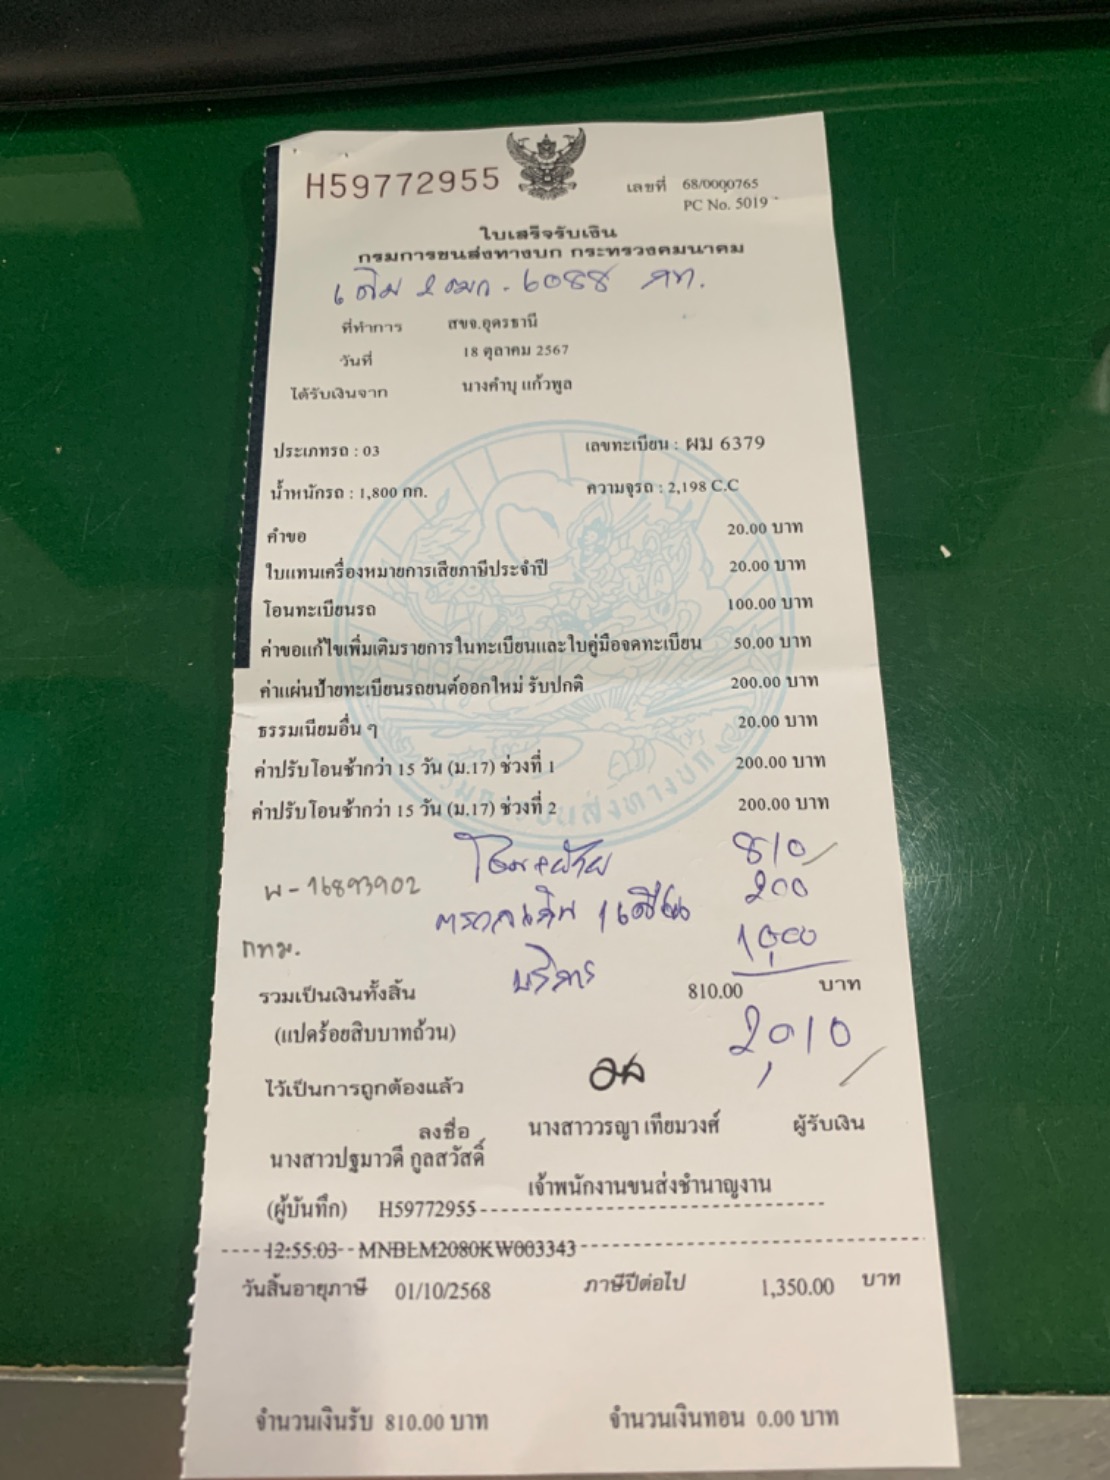 H59772955
เลขที่ 68/0000765
PC No. 5019
ใบเสร็จรับเงิน
กรมการขนส่งทางบก กระทรวงคมนาคม
เดิม 2ฒก-6088 กท.
ที่ทำการ สขจ.อุดรธานี
วันที่ 18 ตุลาคม 2567
ได้รับเงินจาก นางคำบุ แก้วพูล
ประเภทรถ : 03 เลขทะเบียน : ผม 6379
น้ำหนักรถ : 1,800 กก. ความจุรถ : 2,198 C.C
คำขอ 20.00 บาท
ใบแทนเครื่องหมายการเสียภาษีประจำปี 20.00 บาท
โอนทะเบียนรถ 100.00 บาท
ค่าขอแก้ไขเพิ่มเติมรายการในทะเบียนและใบคู่มือจดทะเบียน 50.00 บาท
ค่าแผ่นป้ายทะเบียนรถยนต์ออกใหม่ รับปกติ 200.00 บาท
ธรรมเนียมอื่น ๆ 20.00 บาท
ค่าปรับโอนช้ากว่า 15 วัน (ม.17) ช่วงที่ 1 200.00 บาท
ค่าปรับโอนช้ากว่า 15 วัน (ม.17) ช่วงที่ 2 200.00 บาท
กรมการขนส่งทางบก
โอน+ย้าย 810
พ-16893902
200
1,000
กทม.
บริการ
รวมเป็นเงินทั้งสิ้น 810.00 บาท
(แปดร้อยสิบบาทถ้วน) 2,010
ไว้เป็นการถูกต้องแล้ว
ลงชื่อ นางสาววรญา เทียมวงศ์ ผู้รับเงิน
นางสาวปฐมาวดี กูลสวัสดิ์
เจ้าพนักงานขนส่งชำนาญงาน
(ผู้บันทึก) H59772955
12:55:03 MNBLM2080KW003343
วันสิ้นอายุภาษี 01/10/2568 ภาษีปีต่อไป 1,350.00 บาท
จำนวนเงินรับ 810.00 บาท จำนวนเงินทอน 0.00 บาท